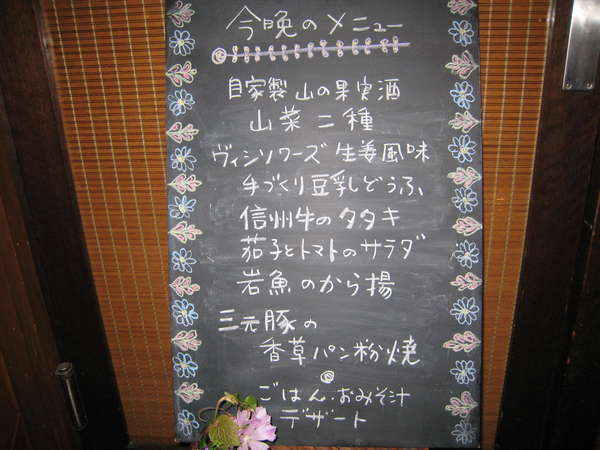 今晩のメニュー
自家製 山の果実酒
山菜二種
ヴィシソワーズ 生姜風味
手づくり豆乳どうふ
信州牛のタタキ
茄子とトマトのサラダ
岩魚のから揚
三元豚の
香草パン粉焼
ごはん・おみそ汁
デザート